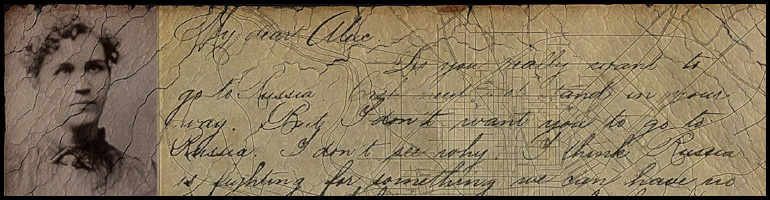 My dear Alec.
Do you really want to
go to Russia. must not stand in your
way. But I don't want you to go to
Russia. I don't see why. I think Russia
is fighting for something we can have no